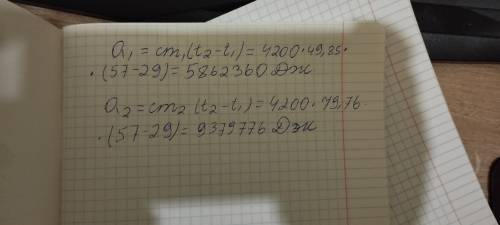 Q₁ = cm₁(t₂-t₁) = 4200·49,85·
·(57-29) = 5862360 Дж
Q₂ = cm₂ (t₂-t₁) = 4200·79,76·
·(57-29) = 9379776 Дж